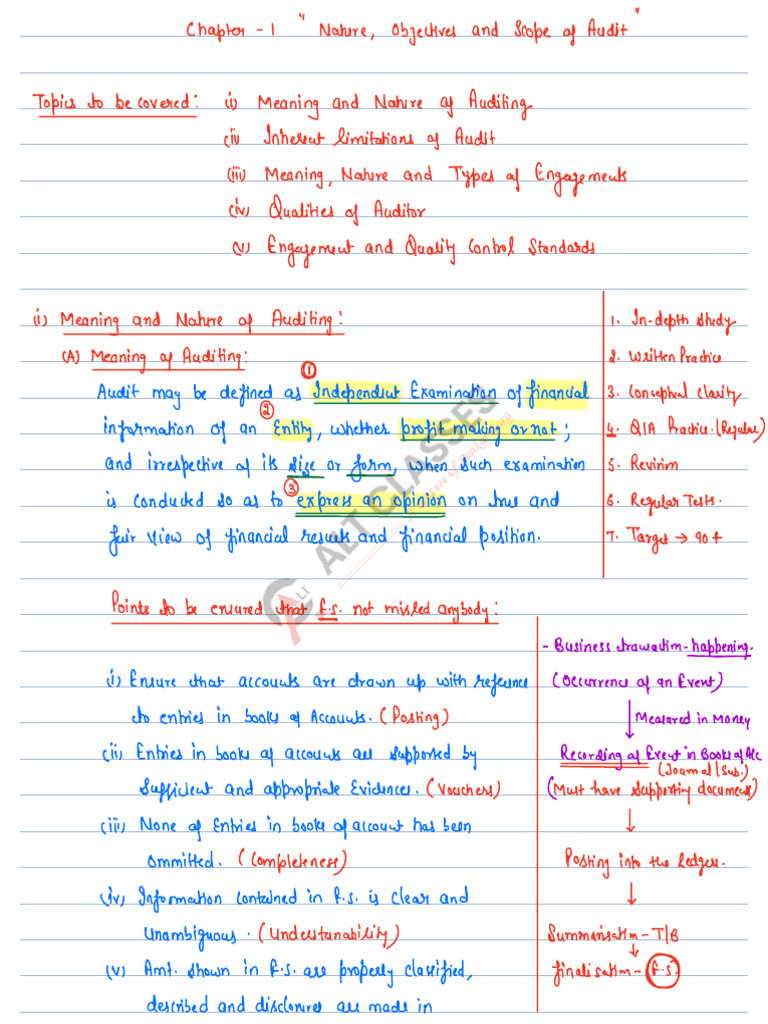 Chapter - 1 " Nature, Objectives and Scope of Audit "
Topics to be covered: (i) Meaning and Nature of Auditing
(ii) Inherent limitations of Audit
(iii) Meaning, Nature and Types of Engagements
(iv) Qualities of Auditor
(v) Engagement and Quality Control Standards
(i) Meaning and Nature of Auditing:
(A) Meaning of Auditing:
①
Audit may be defined as Independent Examination of financial
②
information of an Entity, whether profit making or not;
and irrespective of its size or form, when such examination
③
is conducted so as to express an opinion on true and
fair view of financial results and financial position.
1. In-depth study
2. Written Practice
3. Conceptual Clarity
4. Q/A Practice. (Regular)
5. Revision
6. Regular Tests.
7. Target → 90+
ALT CLASSES
Points to be ensured that f.s. not misled anybody:
i) Ensure that accounts are drawn up with reference
to entries in books of Accounts. (Posting)
(ii) Entries in books of accounts are supported by
sufficient and appropriate Evidences. (Vouchers)
(iii) None of Entries in books of account has been
ommitted. (Completeness)
(iv) Information contained in f.s. is clear and
unambiguous. (Understanability)
(v) Amt. shown in f.s. are properly classified,
described and disclosures are made in
- Business transaction - happening.
(Occurrence of an Event)
↓ Measured in Money
Recording of Event in Books of A/c
(Journal/Sub.)
(Must have supporting documents)
↓
Posting into the Ledgers.
↓
Summarisation - T/B
↓
finalisation - f.s.